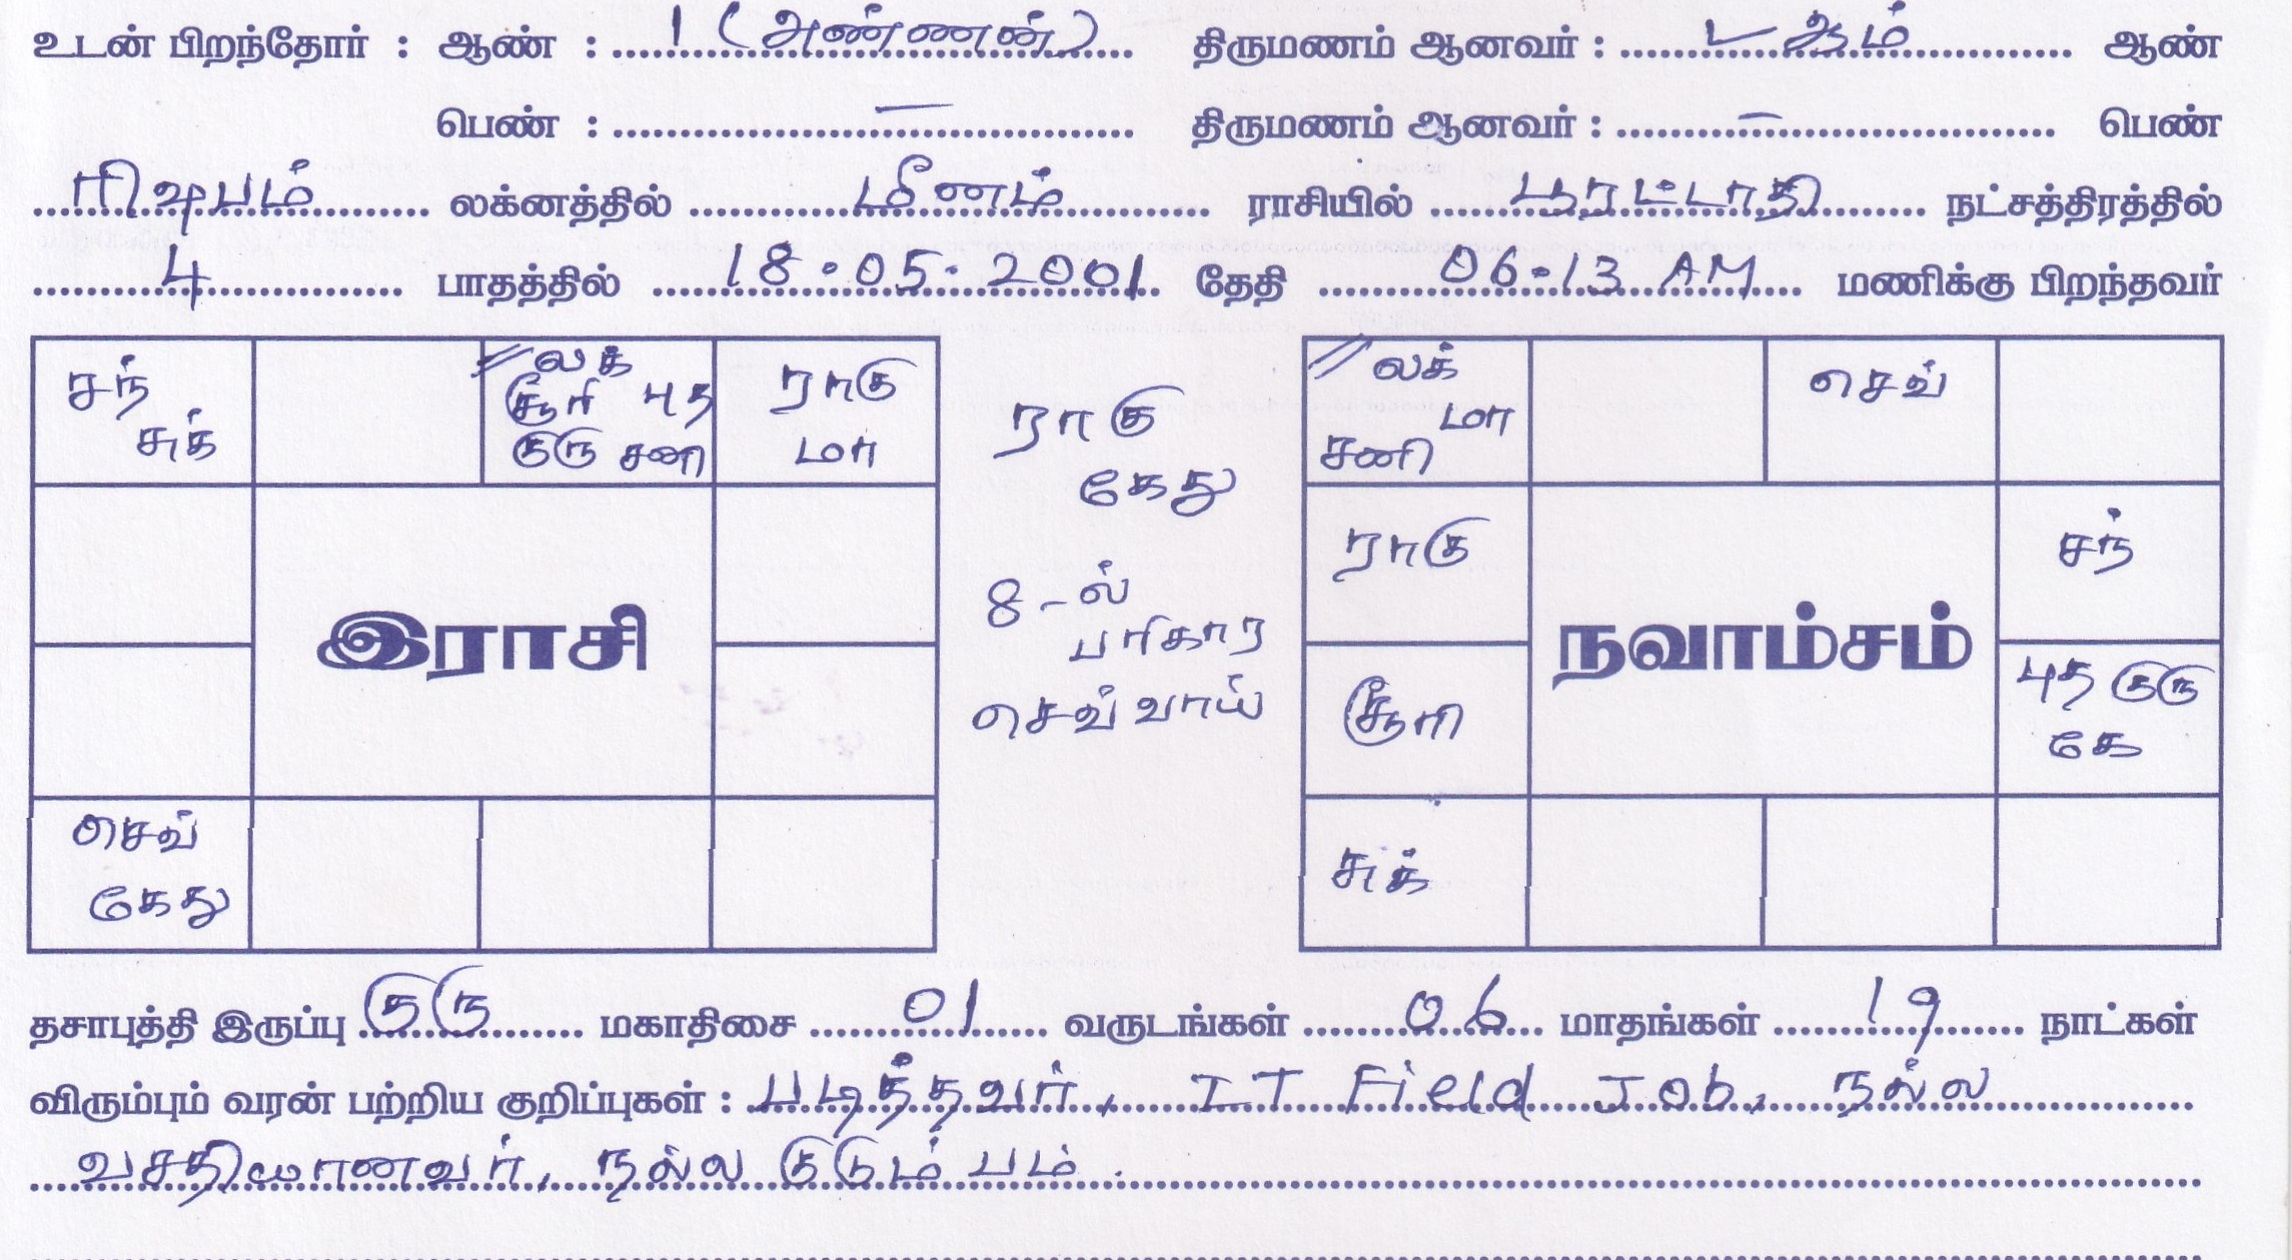 உடன் பிறந்தோர் : ஆண் : 1 (அண்ணன்) திருமணம் ஆனவர் : ஆண்
பெண் : — திருமணம் ஆனவர் : — பெண்
ரிஷபம் லக்னத்தில் மீனம் ராசியில் பூரட்டாதி நட்சத்திரத்தில்
4 பாதத்தில் 18.05.2001 தேதி 06.13 AM மணிக்கு பிறந்தவர்
சந் சுக்
லக் சூரி புத குரு சனி
ராகு மா
செவ் கேது
இராசி
ராகு
கேது
8-ல்
பரிகார
செவ்வாய்
லக் மா சனி
செவ்
ராகு
சந்
சூரி
புத குரு கே
சுக்
நவாம்சம்
தசாபுத்தி இருப்பு குரு மகாதிசை 01 வருடங்கள் 06 மாதங்கள் 19 நாட்கள்
விரும்பும் வரன் பற்றிய குறிப்புகள் : படித்தவர், IT Field Job, நல்ல
வசதியானவர், நல்ல குடும்பம்.